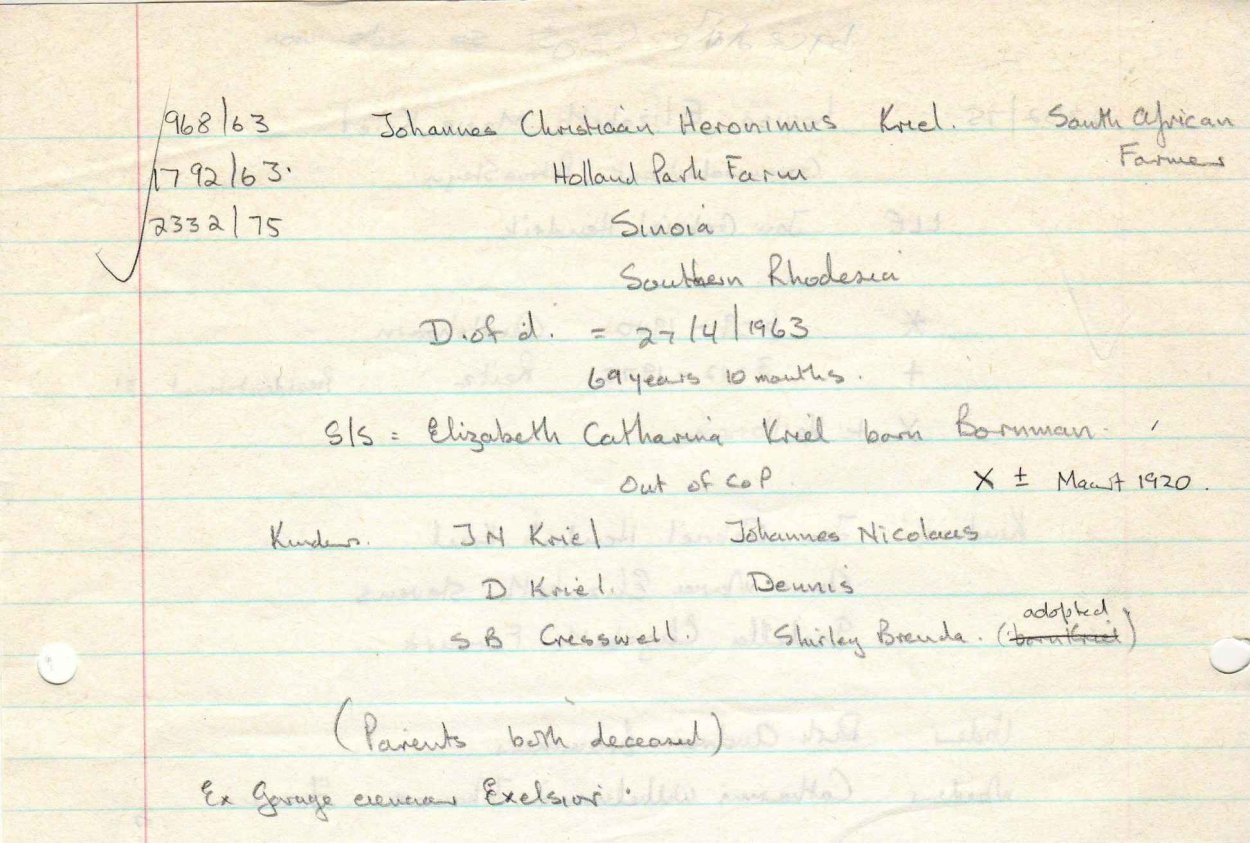 968/63 Johannes Christiaan Heronimus Kriel. South African
Farmer
1792/63. Holland Park Farm
2332/75 Sinoia
Southern Rhodesia
D.of d. = 27/4/1963
69 years 10 months.
S/S = Elizabeth Catharina Kriel born Bornman.
Out of CoP X ± Maart 1920.
Kinders. J N Kriel Johannes Nicolaas
D Kriel. Dennis
adopted
S B Cresswell. Shirley Brenda. (born Kriel)
(Parents both deceased)
Ex Garage eienaar Exelsior.